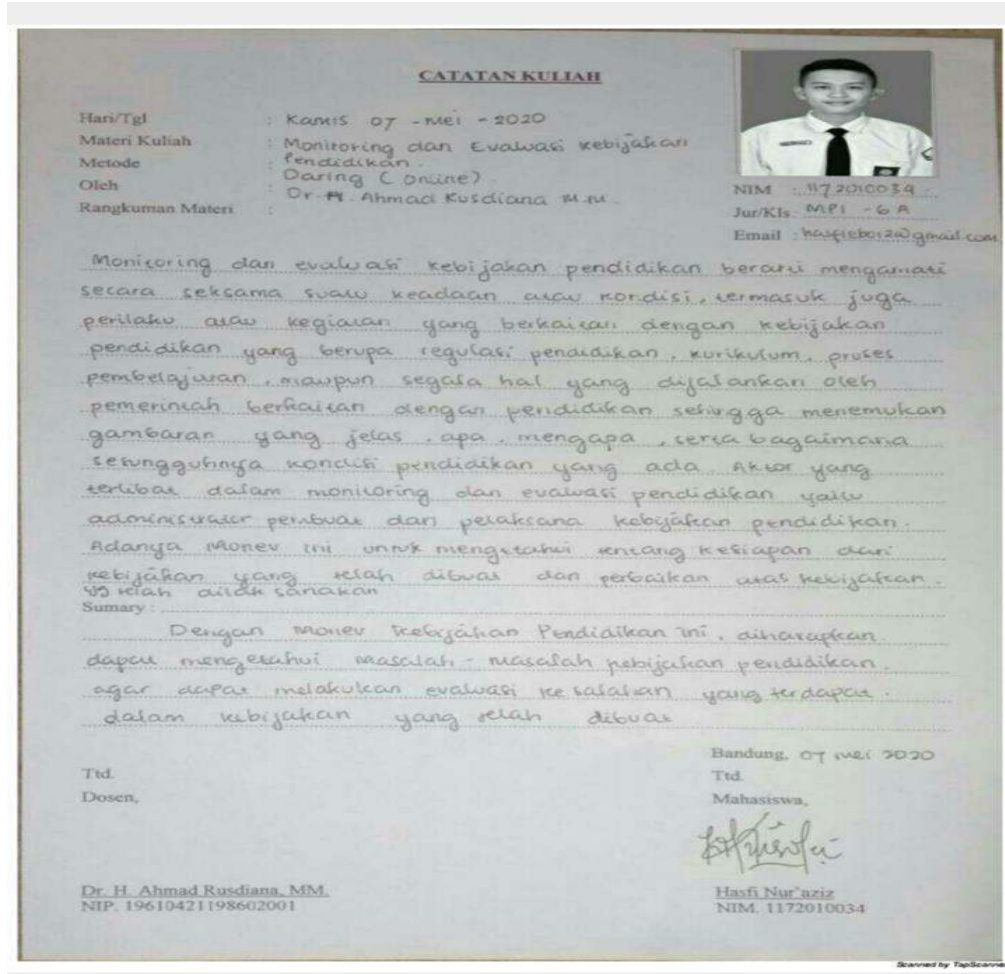 CATATAN KULIAH
Hari/Tgl : Kamis 07 - Mei - 2020
Materi Kuliah : Monitoring dan Evaluasi Kebijakan
Pendidikan.
Metode : Daring (Online)
Oleh : Dr. H. Ahmad Kusdiana M.M.
Rangkuman Materi :
NIM : 1172010034
Jur/Kls : MPI - 6A
Email :
Monitoring dan evaluasi kebijakan pendidikan berarti mengamati
secara seksama suatu keadaan atau kondisi, termasuk juga
perilaku atau kegiatan yang berkaitan dengan kebijakan
pendidikan yang berupa regulasi pendidikan, kurikulum, proses
pembelajaran, maupun segala hal yang dijalankan oleh
pemerintah berkaitan dengan pendidikan sehingga menemukan
gambaran yang jelas, apa, mengapa, serta bagaimana
sesungguhnya kondisi pendidikan yang ada. Aktor yang
terlibat dalam monitoring dan evaluasi pendidikan yaitu
administrator pembuat dan pelaksana kebijakan pendidikan.
Adanya Monev ini untuk mengetahui tentang kesiapan dari
kebijakan yang telah dibuat dan perbaikan atas kebijakan
yg telah dilaksanakan
Sumary :
Dengan Monev Kebijakan Pendidikan ini, diharapkan
dapat mengetahui masalah - masalah kebijakan pendidikan
agar dapat melakukan evaluasi kesalahan yang terdapat
dalam kebijakan yang telah dibuat
Bandung, 07 Mei 2020
Ttd. Ttd.
Dosen, Mahasiswa,
Dr. H. Ahmad Rusdiana, MM. Hasfi Nur'aziz
NIP. 19610421198602001 NIM. 1172010034
Scanned by TapScanner